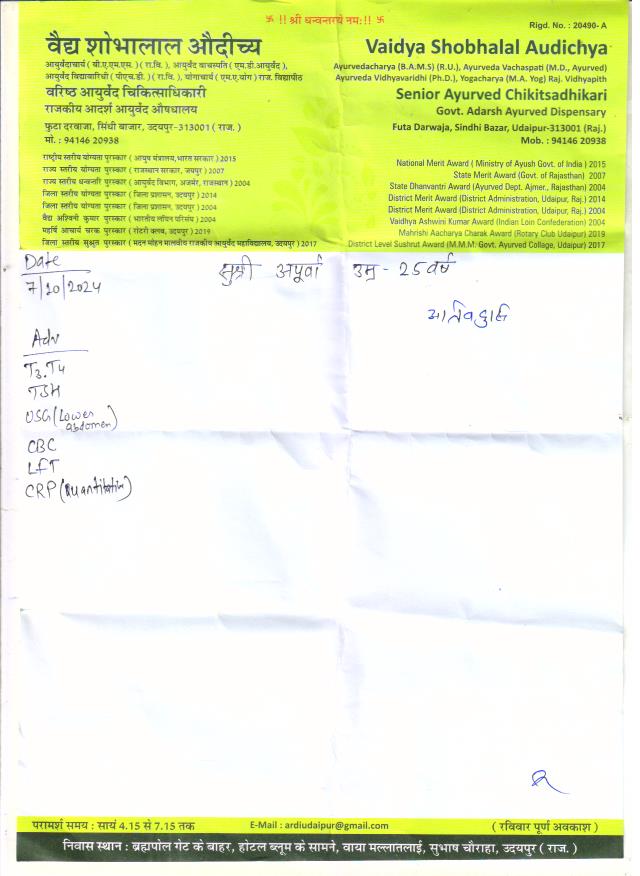 卐 !! श्री धन्वन्तरये नमः!! 卐
Rigd. No. : 20490- A
वैद्य शोभालाल औदीच्य
आयुर्वेदाचार्य ( बी.ए.एम.एस. ) ( रा.वि. ), आयुर्वेद वाचस्पति ( एम.डी.आयुर्वेद ),
आयुर्वेद विद्यावारिधी ( पीएच.डी. ) ( रा.वि. ), योगाचार्य ( एम.ए.योग ) राज. विद्यापीठ
वरिष्ठ आयुर्वेद चिकित्साधिकारी
राजकीय आदर्श आयुर्वेद औषधालय
फुटा दरवाजा, सिंधी बाजार, उदयपुर-313001 ( राज. )
मो. : 94146 20938
Vaidya Shobhalal Audichya
Ayurvedacharya (B.A.M.S) (R.U.), Ayurveda Vachaspati (M.D., Ayurved)
Ayurveda Vidhyavaridhi (Ph.D.), Yogacharya (M.A. Yog) Raj. Vidhyapith
Senior Ayurved Chikitsadhikari
Govt. Adarsh Ayurved Dispensary
Futa Darwaja, Sindhi Bazar, Udaipur-313001 (Raj.)
Mob. : 94146 20938
राष्ट्रीय स्तरीय योग्यता पुरस्कार ( आयुष मंत्रालय,भारत सरकार ) 2015
राज्य स्तरीय योग्यता पुरस्कार ( राजस्थान सरकार, जयपुर ) 2007
राज्य स्तरीय धन्वन्तरि पुरस्कार ( आयुर्वेद विभाग, अजमेर, राजस्थान ) 2004
जिला स्तरीय योग्यता पुरस्कार ( जिला प्रशासन, उदयपुर ) 2014
जिला स्तरीय योग्यता पुरस्कार ( जिला प्रशासन, उदयपुर ) 2004
वैद्य अश्विनी कुमार पुरस्कार ( भारतीय लॉयन परिसंघ ) 2004
महर्षि आचार्य चरक पुरस्कार ( रोटरी क्लब, उदयपुर ) 2019
जिला स्तरीय सुश्रुत पुरस्कार ( मदन मोहन मालवीय राजकीय आयुर्वेद महाविद्यालय, उदयपुर ) 2017
National Merit Award ( Ministry of Ayush Govt. of India ) 2015
State Merit Award (Govt. of Rajasthan) 2007
State Dhanvantri Award (Ayurved Dept. Ajmer., Rajasthan) 2004
District Merit Award (District Administration, Udaipur, Raj.) 2014
District Merit Award (District Administration, Udaipur, Raj.) 2004
Vaidhya Ashwini Kumar Award (Indian Loin Confederation) 2004
Mahrishi Aacharya Charak Award (Rotary Club Udaipur) 2019
District Level Sushrut Award (M.M.M. Govt. Ayurved Collage, Udaipur) 2017
Date
7/10/2024
सुश्री अपूर्वा उम्र - 25 वर्ष
Adv
T3.T4
TSH
USG (Lower
abdomen)
CBC
LFT
CRP (Quantitative)
परामर्श समय : सायं 4.15 से 7.15 तक
E-Mail : ardiudaipur@gmail.com
( रविवार पूर्ण अवकाश )
निवास स्थान : ब्रह्मपोल गेट के बाहर, होटल ब्लूम के सामने, वाया मल्लातलाई, सुभाष चौराहा, उदयपुर ( राज. )